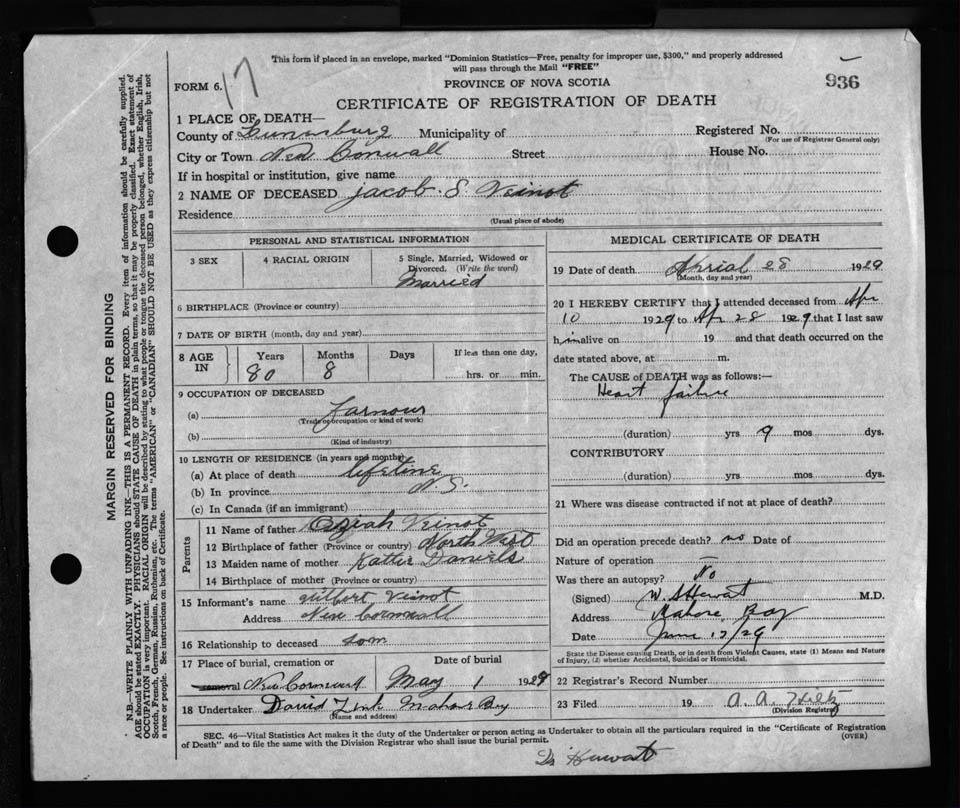 This form if placed in an envelope, marked "Dominion Statistics—Free, penalty for improper use, $300," and properly addressed
will pass through the Mail "FREE"
FORM 6. 17
PROVINCE OF NOVA SCOTIA
936
CERTIFICATE OF REGISTRATION OF DEATH
1 PLACE OF DEATH—
County of Lunenburg Municipality of Registered No.
(For use of Registrar General only)
City or Town New Cornwall Street House No.
If in hospital or institution, give name
2 NAME OF DECEASED Jacob. S. Veinot
Residence
(Usual place of abode)
PERSONAL AND STATISTICAL INFORMATION
3 SEX 4 RACIAL ORIGIN 5 Single, Married, Widowed or
Divorced. (Write the word)
Married
6 BIRTHPLACE (Province or country)
7 DATE OF BIRTH (month, day and year)
8 AGE IN Years Months Days If less than one day,
80 8 hrs. or min.
9 OCCUPATION OF DECEASED
(a) Farmour
(Trade or occupation or kind of work)
(b)
(Kind of industry)
10 LENGTH OF RESIDENCE (in years and months)
(a) At place of death lifetime
(b) In province N.S.
(c) In Canada (if an immigrant)
Parents
11 Name of father Veinot
12 Birthplace of father (Province or country) North West
13 Maiden name of mother Daniels
14 Birthplace of mother (Province or country)
15 Informant's name Veinot
Address New Cornwall
16 Relationship to deceased son
17 Place of burial, cremation or Date of burial
removal New Cornwall May 1 1929
18 Undertaker David Zink Mahone Bay
(Name and address)
MEDICAL CERTIFICATE OF DEATH
19 Date of death Aprial 28 1929
(Month, day and year)
20 I HEREBY CERTIFY that I attended deceased from Apr
10 1929 to Apr 28 1929 that I last saw
him alive on 19 and that death occurred on the
date stated above, at m.
The CAUSE of DEATH was as follows:—
Heart failure
(duration) yrs 9 mos dys.
CONTRIBUTORY
(duration) yrs mos dys.
21 Where was disease contracted if not at place of death?
Did an operation precede death? no Date of
Nature of operation —
Was there an autopsy? No
(Signed) M.D.
Address Mahone Bay
Date June 17/29
State the Disease causing Death, or in death from Violent Causes, state (1) Means and Nature
of Injury, (2) whether Accidental, Suicidal or Homicidal.
22 Registrar's Record Number
23 Filed 19 A. A.
(Division Registrar)
SEC. 46—Vital Statistics Act makes it the duty of the Undertaker or person acting as Undertaker to obtain all the particulars required in the "Certificate of Registration
of Death" and to file the same with the Division Registrar who shall issue the burial permit. (OVER)
Dr
MARGIN RESERVED FOR BINDING
N.B.—WRITE PLAINLY WITH UNFADING INK—THIS IS A PERMANENT RECORD. Every item of information should be carefully supplied.
AGE should be stated EXACTLY. PHYSICIANS should STATE CAUSE OF DEATH in plain terms, so that it may be properly classified. Exact statement of
OCCUPATION is very important. RACIAL ORIGIN will be described by stating to what people or tongue the deceased person belonged, whether English, Irish,
Scotch, French, German, Russian, Ruthenian, etc. The terms "AMERICAN" or "CANADIAN" SHOULD NOT BE USED as they express citizenship but not
a race or people. See instructions on back of Certificate.